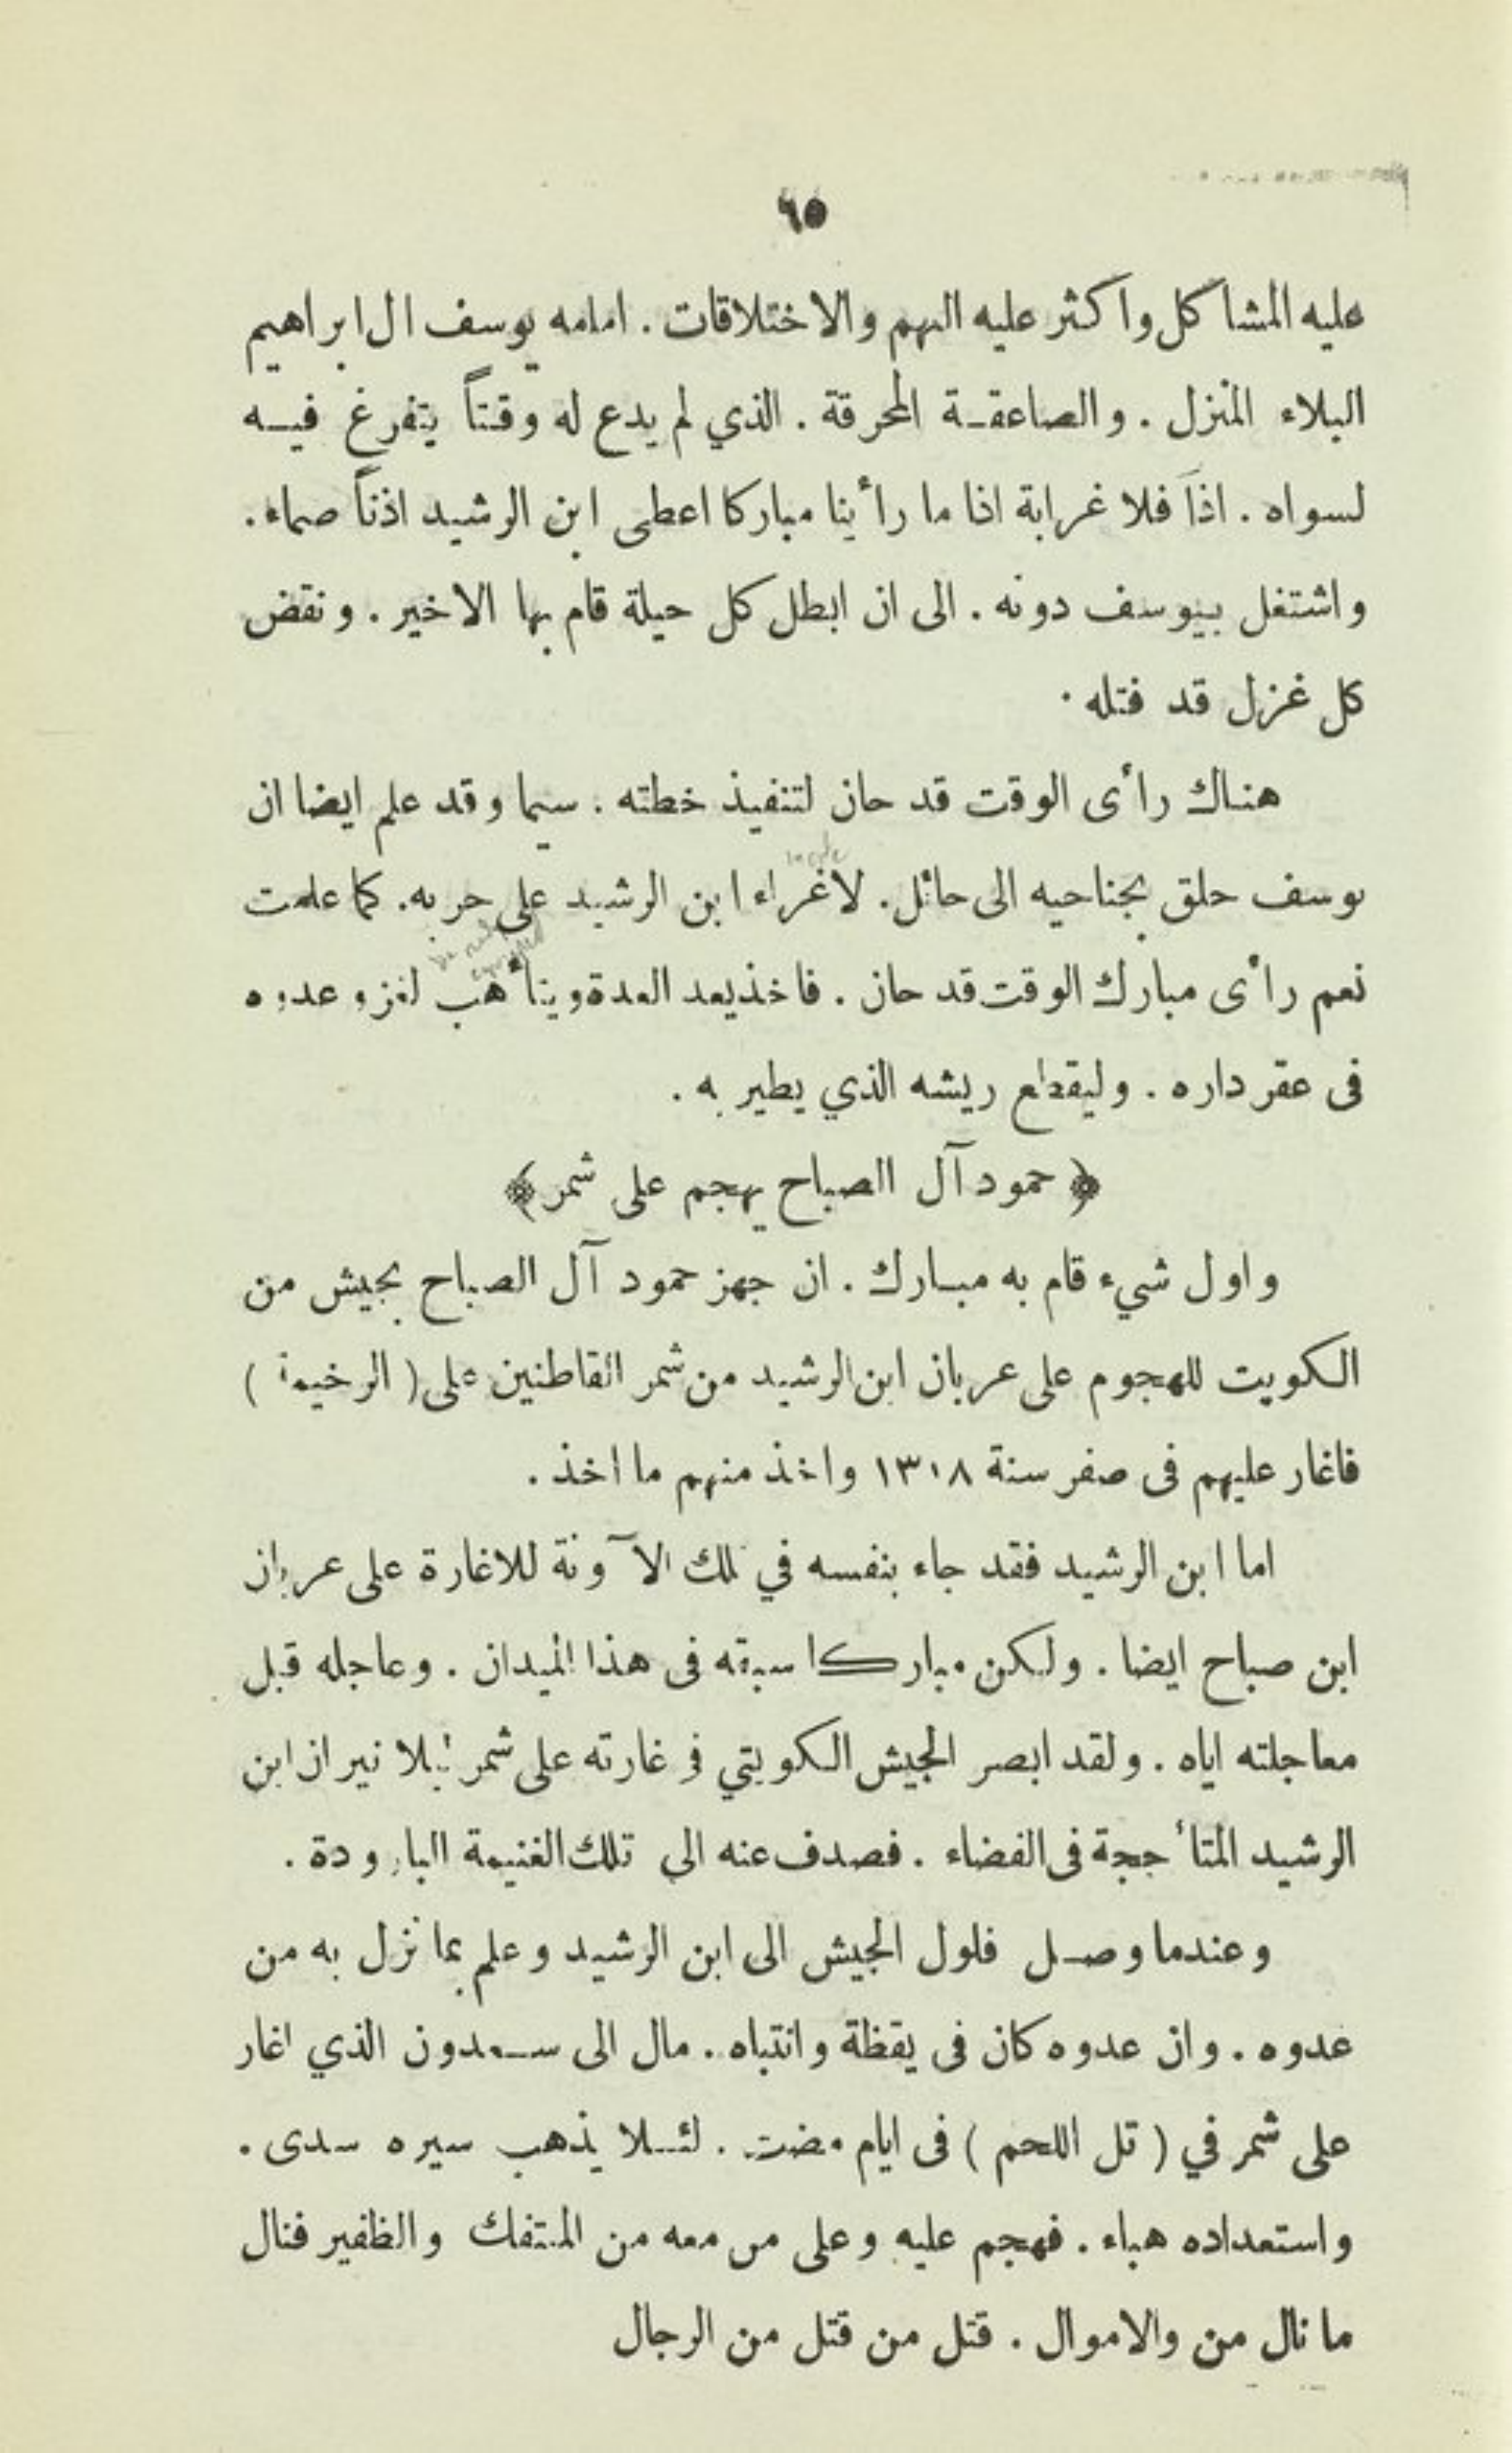 ٦٥
عليه المشاكل واكثر عليه التهم والاختلاقات . امامه يوسف ال ابراهيم
البلاء المنزل . والصاعقـة المحرقة . الذي لم يدع له وقتاً يتفرغ فيـه
لسواه . اذاَ فلا غرابة اذا ما رأينا مباركا اعطى ابن الرشيد اذناً صماء .
واشتغل بيوسف دونه . الى ان ابطل كل حيلة قام بها الاخير . ونقض
كل غزل قد فتله .
هناك رأى الوقت قد حان لتنفيذ خطته . سيما وقد علم ايضا ان
يوسف حلق بجناحيه الى حائل . لاغراء ابن الرشيد على حربه . كما علمت
نعم رأى مبارك الوقت قد حان . فاخذ يعد العدة ويتأهب لغزو عدوه
فى عقر داره . وليقطع ريشه الذي يطير به .
﴿ حمود آل الصباح يهجم على شمر ﴾
واول شيء قام به مبـارك . ان جهز حمود آل الصباح بجيش من
الكويت للهجوم على عربان ابن الرشيد من شمر القاطنين على ( الرخيمة )
فاغار عليهم فى صفر سنة ١٣١٨ واخذ منهم ما اخذ .
اما ابن الرشيد فقد جاء بنفسه في تلك الآونة للاغارة على عربان
ابن صباح ايضا . ولكن مباركا سبقه فى هذا الميدان . وعاجله قبل
معاجلته اياه . ولقد ابصر الجيش الكويتي فى غارته على شمر ليلا نيران ابن
الرشيد المتأججة فى الفضاء . فصدف عنه الى تلك الغنيمة الباردة .
وعندما وصـل فلول الجيش الى ابن الرشيد وعلم بما نزل به من
عدوه . وان عدوه كان فى يقظة وانتباه . مال الى سـعدون الذي اغار
على شمر في ( تل اللحم ) فى ايام مضت . لئـلا يذهب سيره سدى .
واستعداده هباء . فهجم عليه وعلى من معه من المنتفك والظفير فنال
ما نال من والاموال . قتل من قتل من الرجال